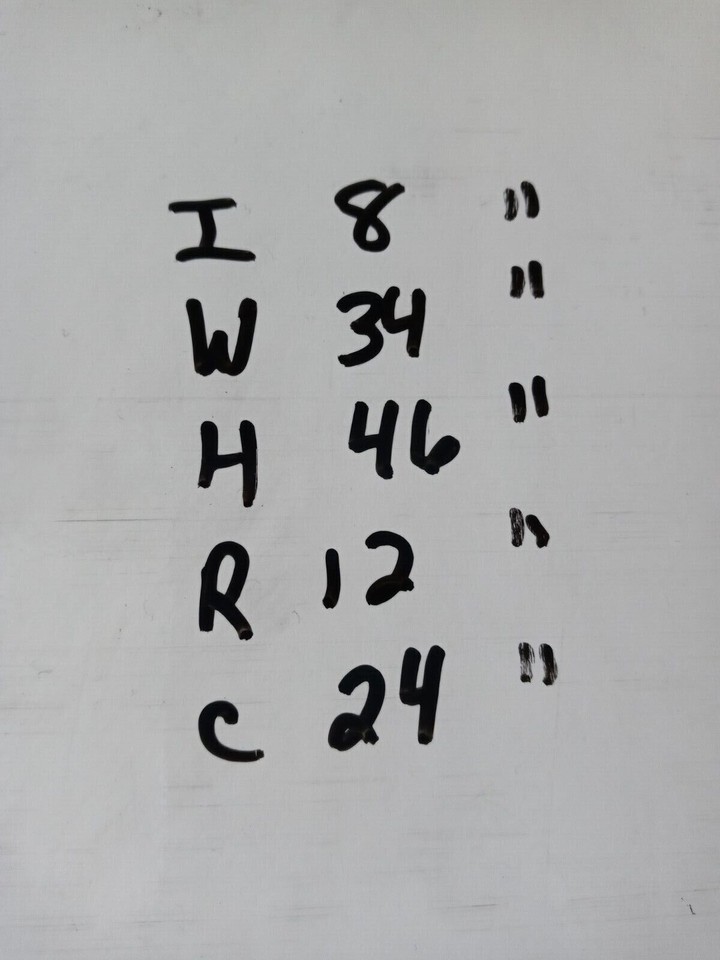 I 8 "
W 34 "
H 46 "
R 12 "
C 24 "